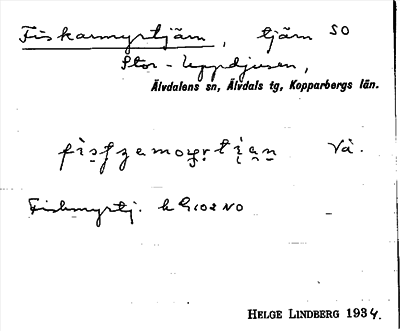 Fiskarmyrtjärn, tjärn SO
Stor-Uppdjusen,
Älvdalens sn, Älvdals tg, Kopparbergs län.
Vå.
Fiskmyrtj. k G102 NO
HELGE LINDBERG 1934.